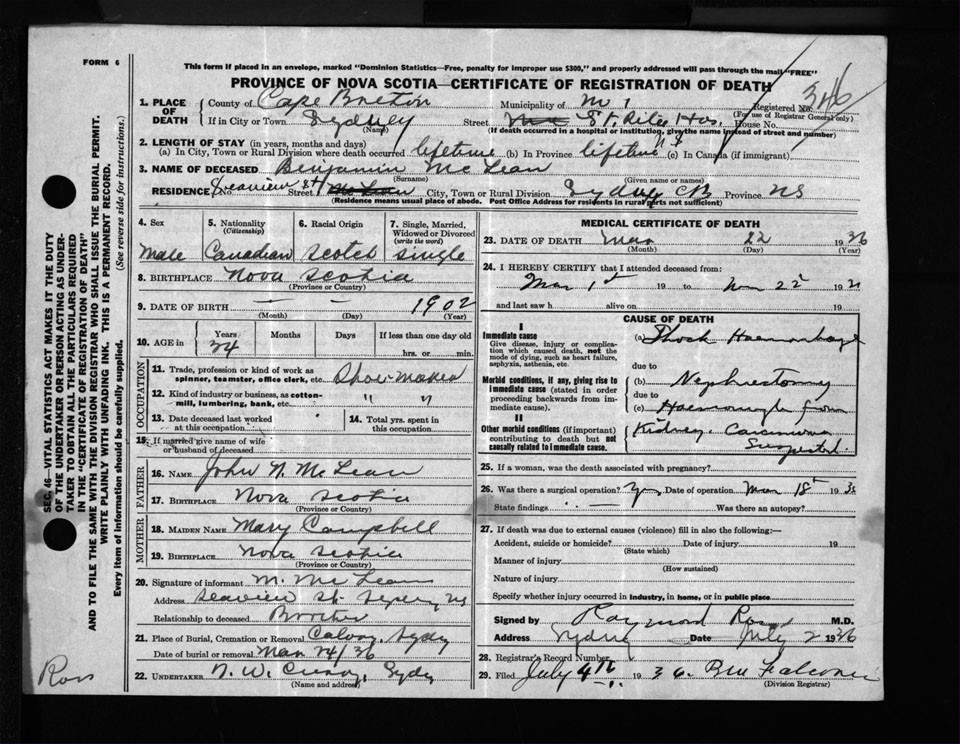 FORM 6
This form if placed in an envelope, marked "Dominion Statistics—Free, penalty for improper use $300," and properly addressed will pass through the mail "FREE"
PROVINCE OF NOVA SCOTIA—CERTIFICATE OF REGISTRATION OF DEATH
1. PLACE OF DEATH County of Cape Breton Municipality of Registered No. 346
(For use of Registrar General only)
If in City or Town Sydney Street St. Rita Hos. House No.
(Name) (If death occurred in a hospital or institution, give the name instead of street and number)
2. LENGTH OF STAY (in years, months and days)
(a) In City, Town or Rural Division where death occurred lifetime (b) In Province lifetime (c) In Canada (if immigrant)
3. NAME OF DECEASED Benjamin McLean
(Surname) (Given name or names)
RESIDENCE No. Seaview St Street McLean City, Town or Rural Division Sydney CB Province NS
(Residence means usual place of abode. Post Office Address for residents in rural parts not sufficient)
4. Sex Male
5. Nationality (Citizenship) Canadian
6. Racial Origin Scotch
7. Single, Married, Widowed or Divorced (write the word) single
8. BIRTHPLACE Nova Scotia
(Province or Country)
9. DATE OF BIRTH — — 1902
(Month) (Day) (Year)
10. AGE in Years Months Days If less than one day old
hrs. or min.
OCCUPATION
11. Trade, profession or kind of work as spinner, teamster, office clerk, etc. Shoe-maker
12. Kind of industry or business, as cotton-mill, lumbering, bank, etc. " "
13. Date deceased last worked at this occupation
14. Total yrs. spent in this occupation
15. If married give name of wife or husband of deceased
FATHER
16. NAME John N. McLean
17. BIRTHPLACE Nova Scotia
(Province or Country)
MOTHER
18. MAIDEN NAME Mary Campbell
19. BIRTHPLACE Nova Scotia
(Province or Country)
20. Signature of informant M. McLean
Address Seaview St. Sydney NS
Relationship to deceased Brother
21. Place of Burial, Cremation or Removal Sydney
Date of burial or removal Mar 24/36
22. UNDERTAKER N. W. Sydney
(Name and address)
MEDICAL CERTIFICATE OF DEATH
23. DATE OF DEATH Mar 22 1936
(Month) (Day) (Year)
24. I HEREBY CERTIFY that I attended deceased from:
Mar 1st 19 to 22 19
and last saw h alive on 19
CAUSE OF DEATH
I
Immediate cause
Give disease, injury or complication which caused death, not the mode of dying, such as heart failure, asphyxia, asthenia, etc.
(a) Shock Haemorrhage
due to
Morbid conditions, if any, giving rise to immediate cause (stated in order proceeding backwards from immediate cause).
(b) Nephrectomy
due to
(c) Haemorrhage from
II
Other morbid conditions (if important) contributing to death but not causally related to immediate cause.
Kidney. Carcinoma
Suspected.
25. If a woman, was the death associated with pregnancy?
26. Was there a surgical operation? Yes Date of operation Mar 18th 1936
State findings Was there an autopsy?
27. If death was due to external causes (violence) fill in also the following:—
Accident, suicide or homicide? Date of injury 19
(State which)
Manner of injury
(How sustained)
Nature of injury
Specify whether injury occurred in industry, in home, or in public place
Signed by Raymond Ross M.D.
Address Sydney Date July 2 1936
28. Registrar's Record Number
29. Filed July 4th 1936.
(Division Registrar)
SEC. 46—VITAL STATISTICS ACT MAKES IT THE DUTY
OF THE UNDERTAKER OR PERSON ACTING AS UNDER-
TAKER TO OBTAIN ALL THE PARTICULARS REQUIRED
IN THE "CERTIFICATE OF REGISTRATION OF DEATH"
AND TO FILE THE SAME WITH THE DIVISION REGISTRAR WHO SHALL ISSUE THE BURIAL PERMIT.
WRITE PLAINLY WITH UNFADING INK. THIS IS A PERMANENT RECORD.
Every item of information should be carefully supplied. (See reverse side for instructions.)
Ross